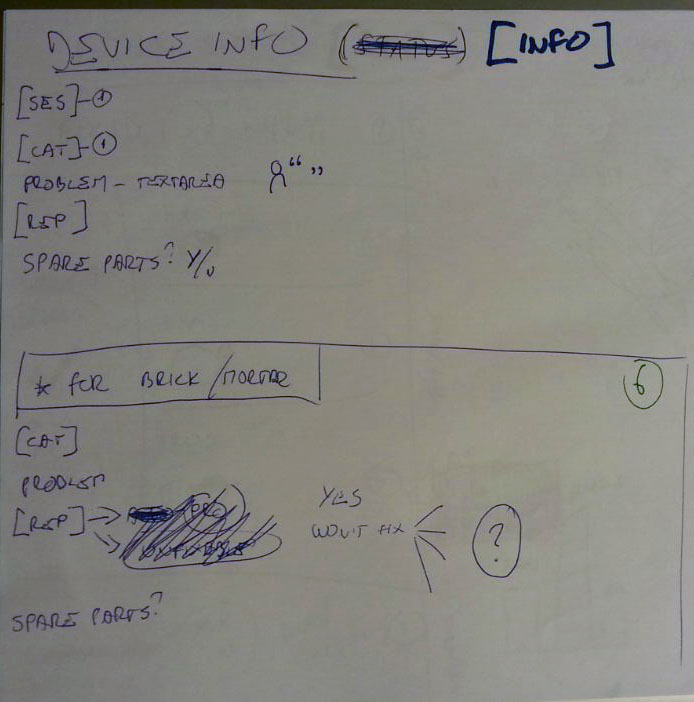 DEVICE INFO (STATUS) [INFO]
[SES]-①
[CAT]-①
PROBLEM - TEXTAREA “ ”
[REP]
SPARE PARTS? Y/N
* FOR BRICK/MORTAR
6
[CAT]
PROBLEM
[REP]
YES
WON'T FIX
?
SPARE PARTS?